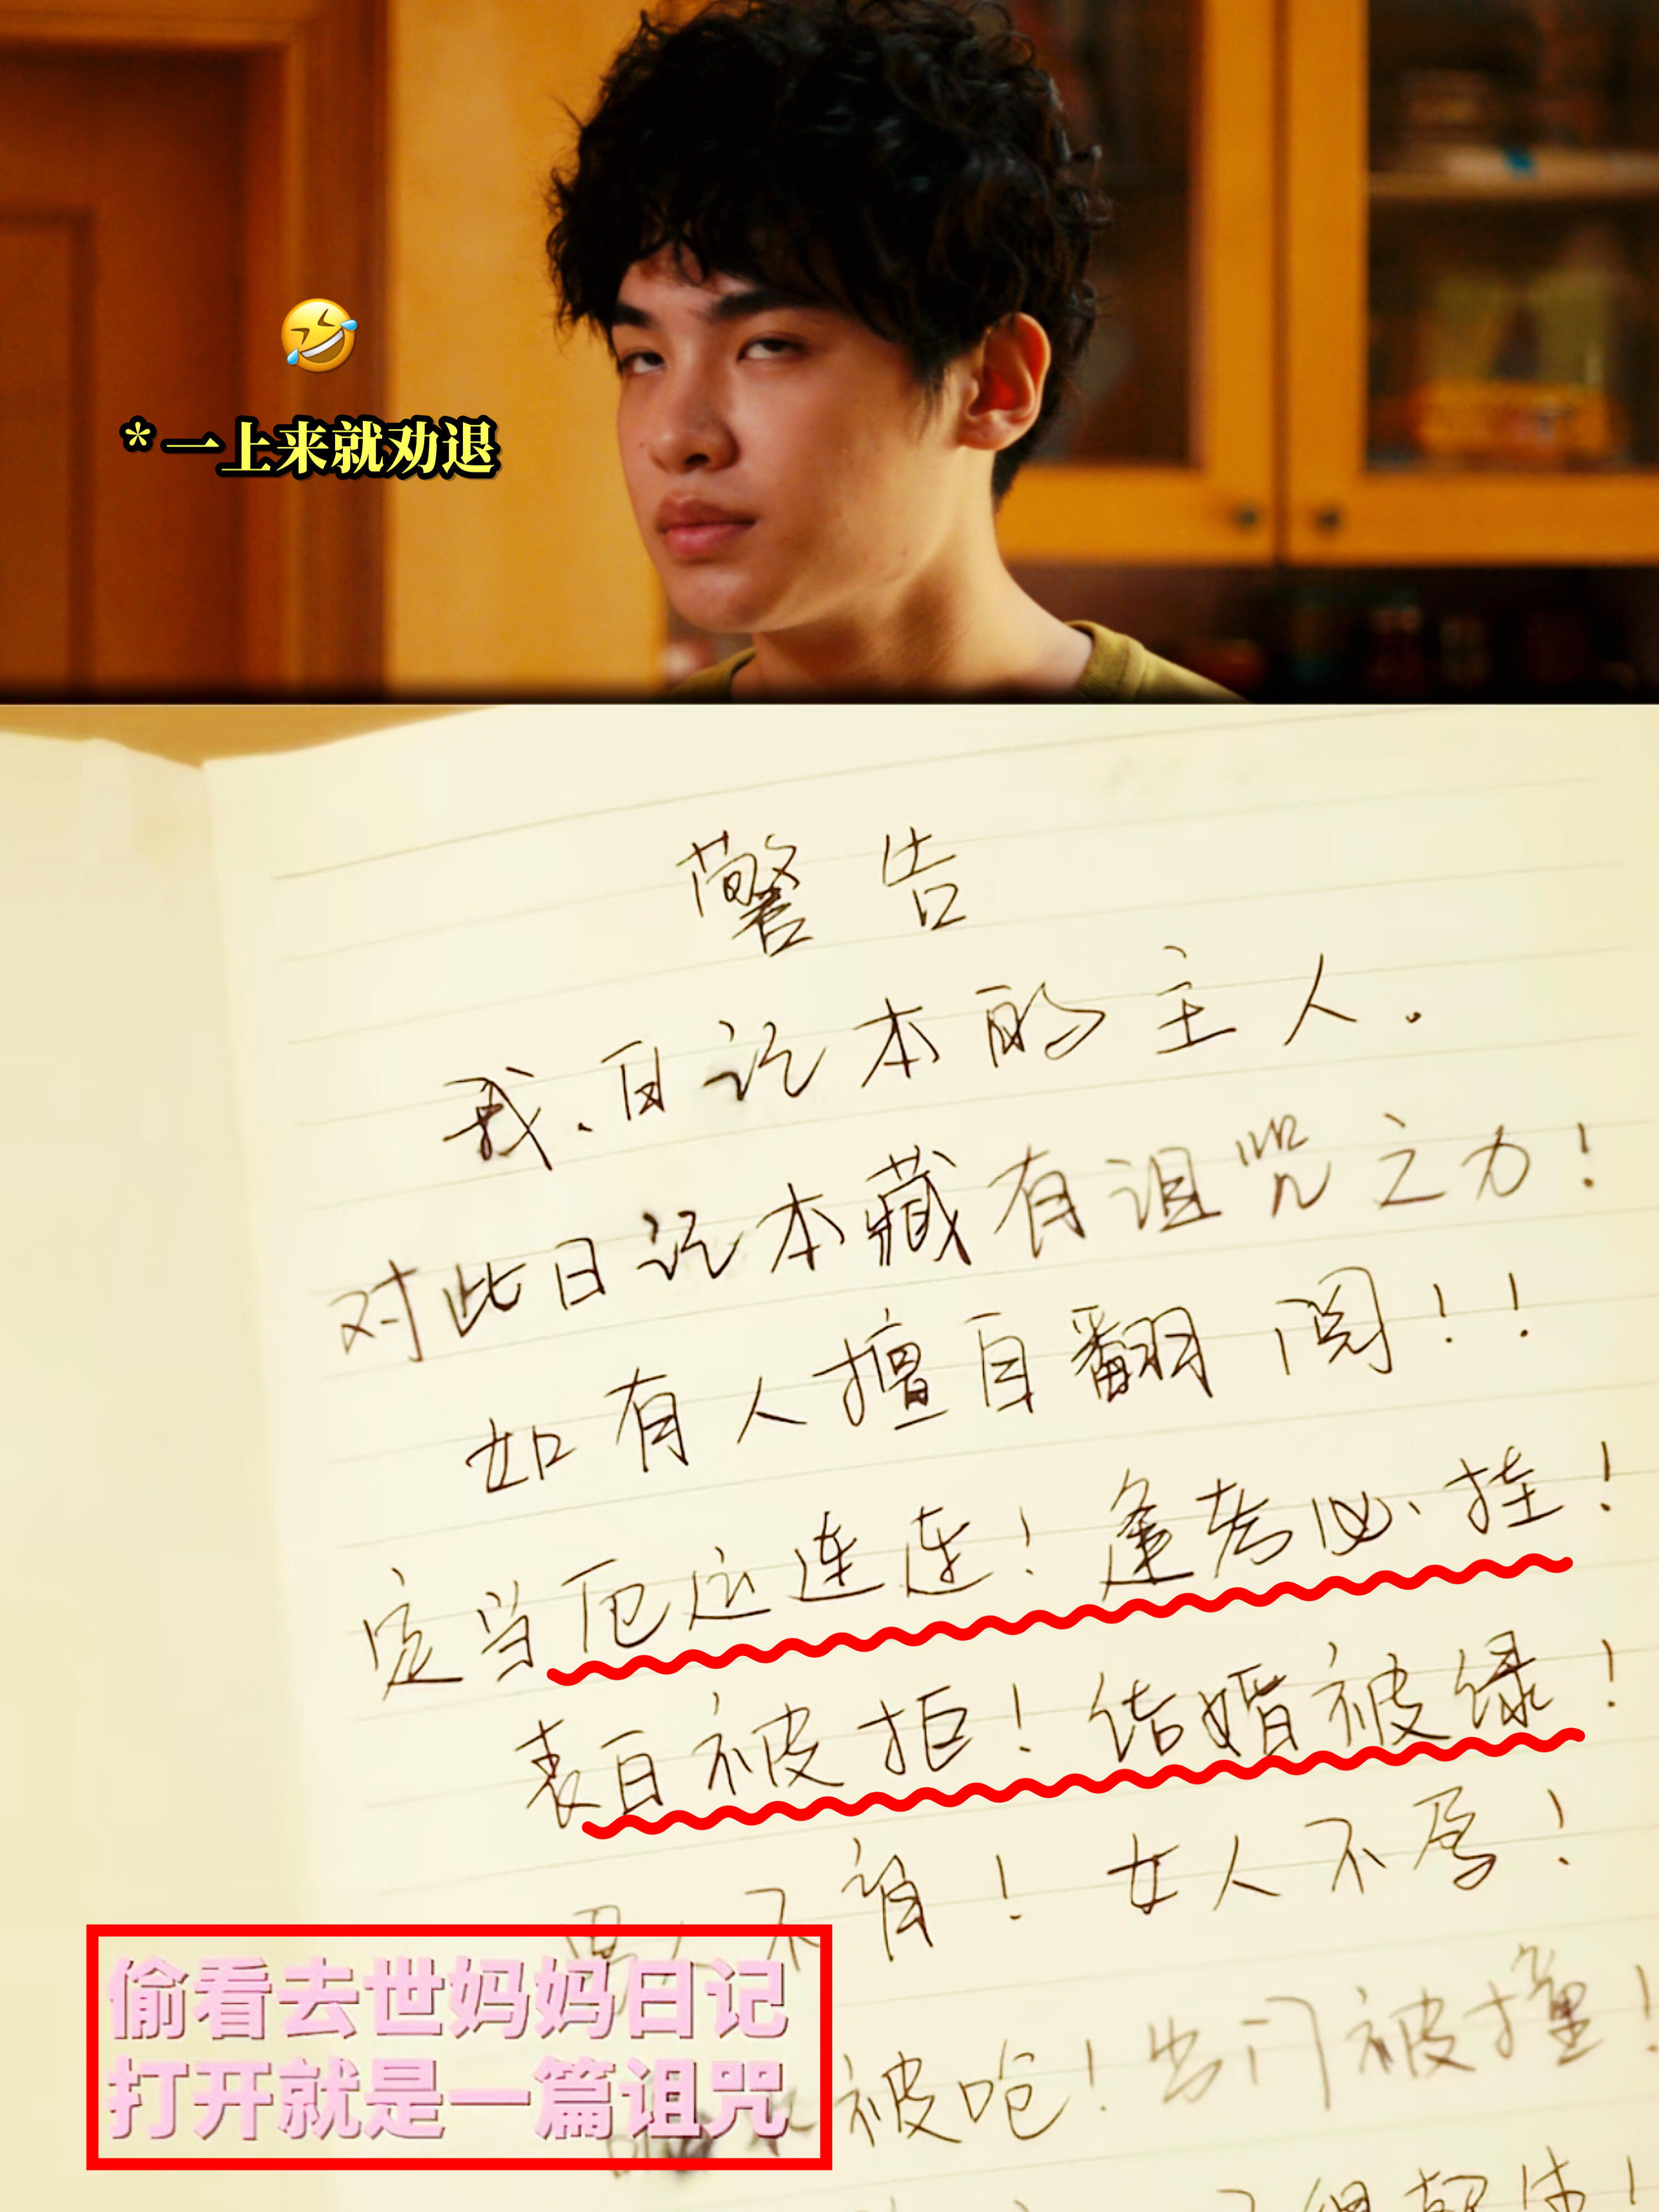 *一上来就劝退
警告
我、日记本的主人.
对此日记本藏有诅咒之力!
如有人擅自翻阅!!
定当厄运连连!逢考必挂!
表白被拒!结婚被绿!
男人不育!女人不孕!
被呛!出门被撞!
偷看去世妈妈日记
打开就是一篇诅咒